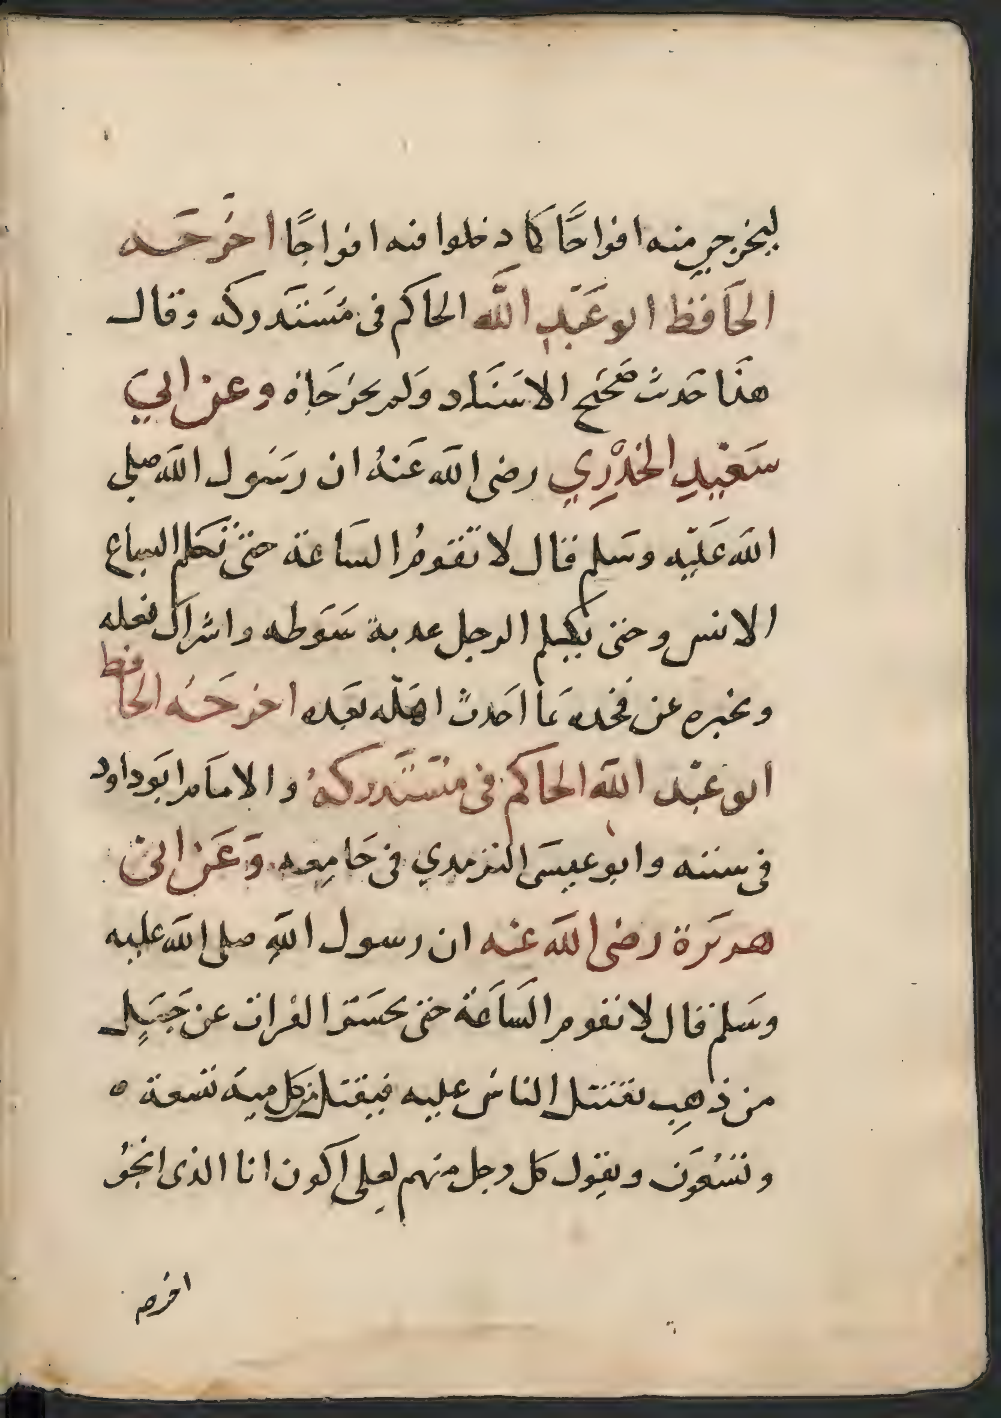 ليخرجن منه افواجًا كما دخلوا فيه افواجًا اخرَجَه
الحَافظ ابو عَبْدِ اللَّه الحاكم في مُسْتَدركه وقال
هذا حَديث صَحيح الاسْنَاد ولم يخرجَاه وعن ابي
سَعيْدِ الخُدْرِي رضى الله عَنهُ ان رسَول الله صلى
الله عَليْه وسَلم قال لا تقومُ السَاعة حتى تكلم السباع
الانس وحتى يكلم الرجل عدبة سَوطه واشراك نعله
ويخبره عن فخده بمَا احَدث اهله بعَده اخرجَهُ الحافظ
ابو عبْد اللَّه الحاكم في مُسْتَدركهُ والامَام ابَوداود
في سننه وابو عيسَى الترمدي في جَامِعه وَعَن ابي
هريَرة رضى الله عنْه ان رسول اللَّهِ صلى الله عليه
وسَلم قال لا تقوم السَاعَة حتى يحسَر الفرات عن جَبَلٍ
من ذهبٍ يقتتل الناسُ عليه فيقتل من كل مية تسعة ه
وتسْعُونَ ويقول كل رجل منهم لعلى اكون انا الذى انجُو
اخرجه